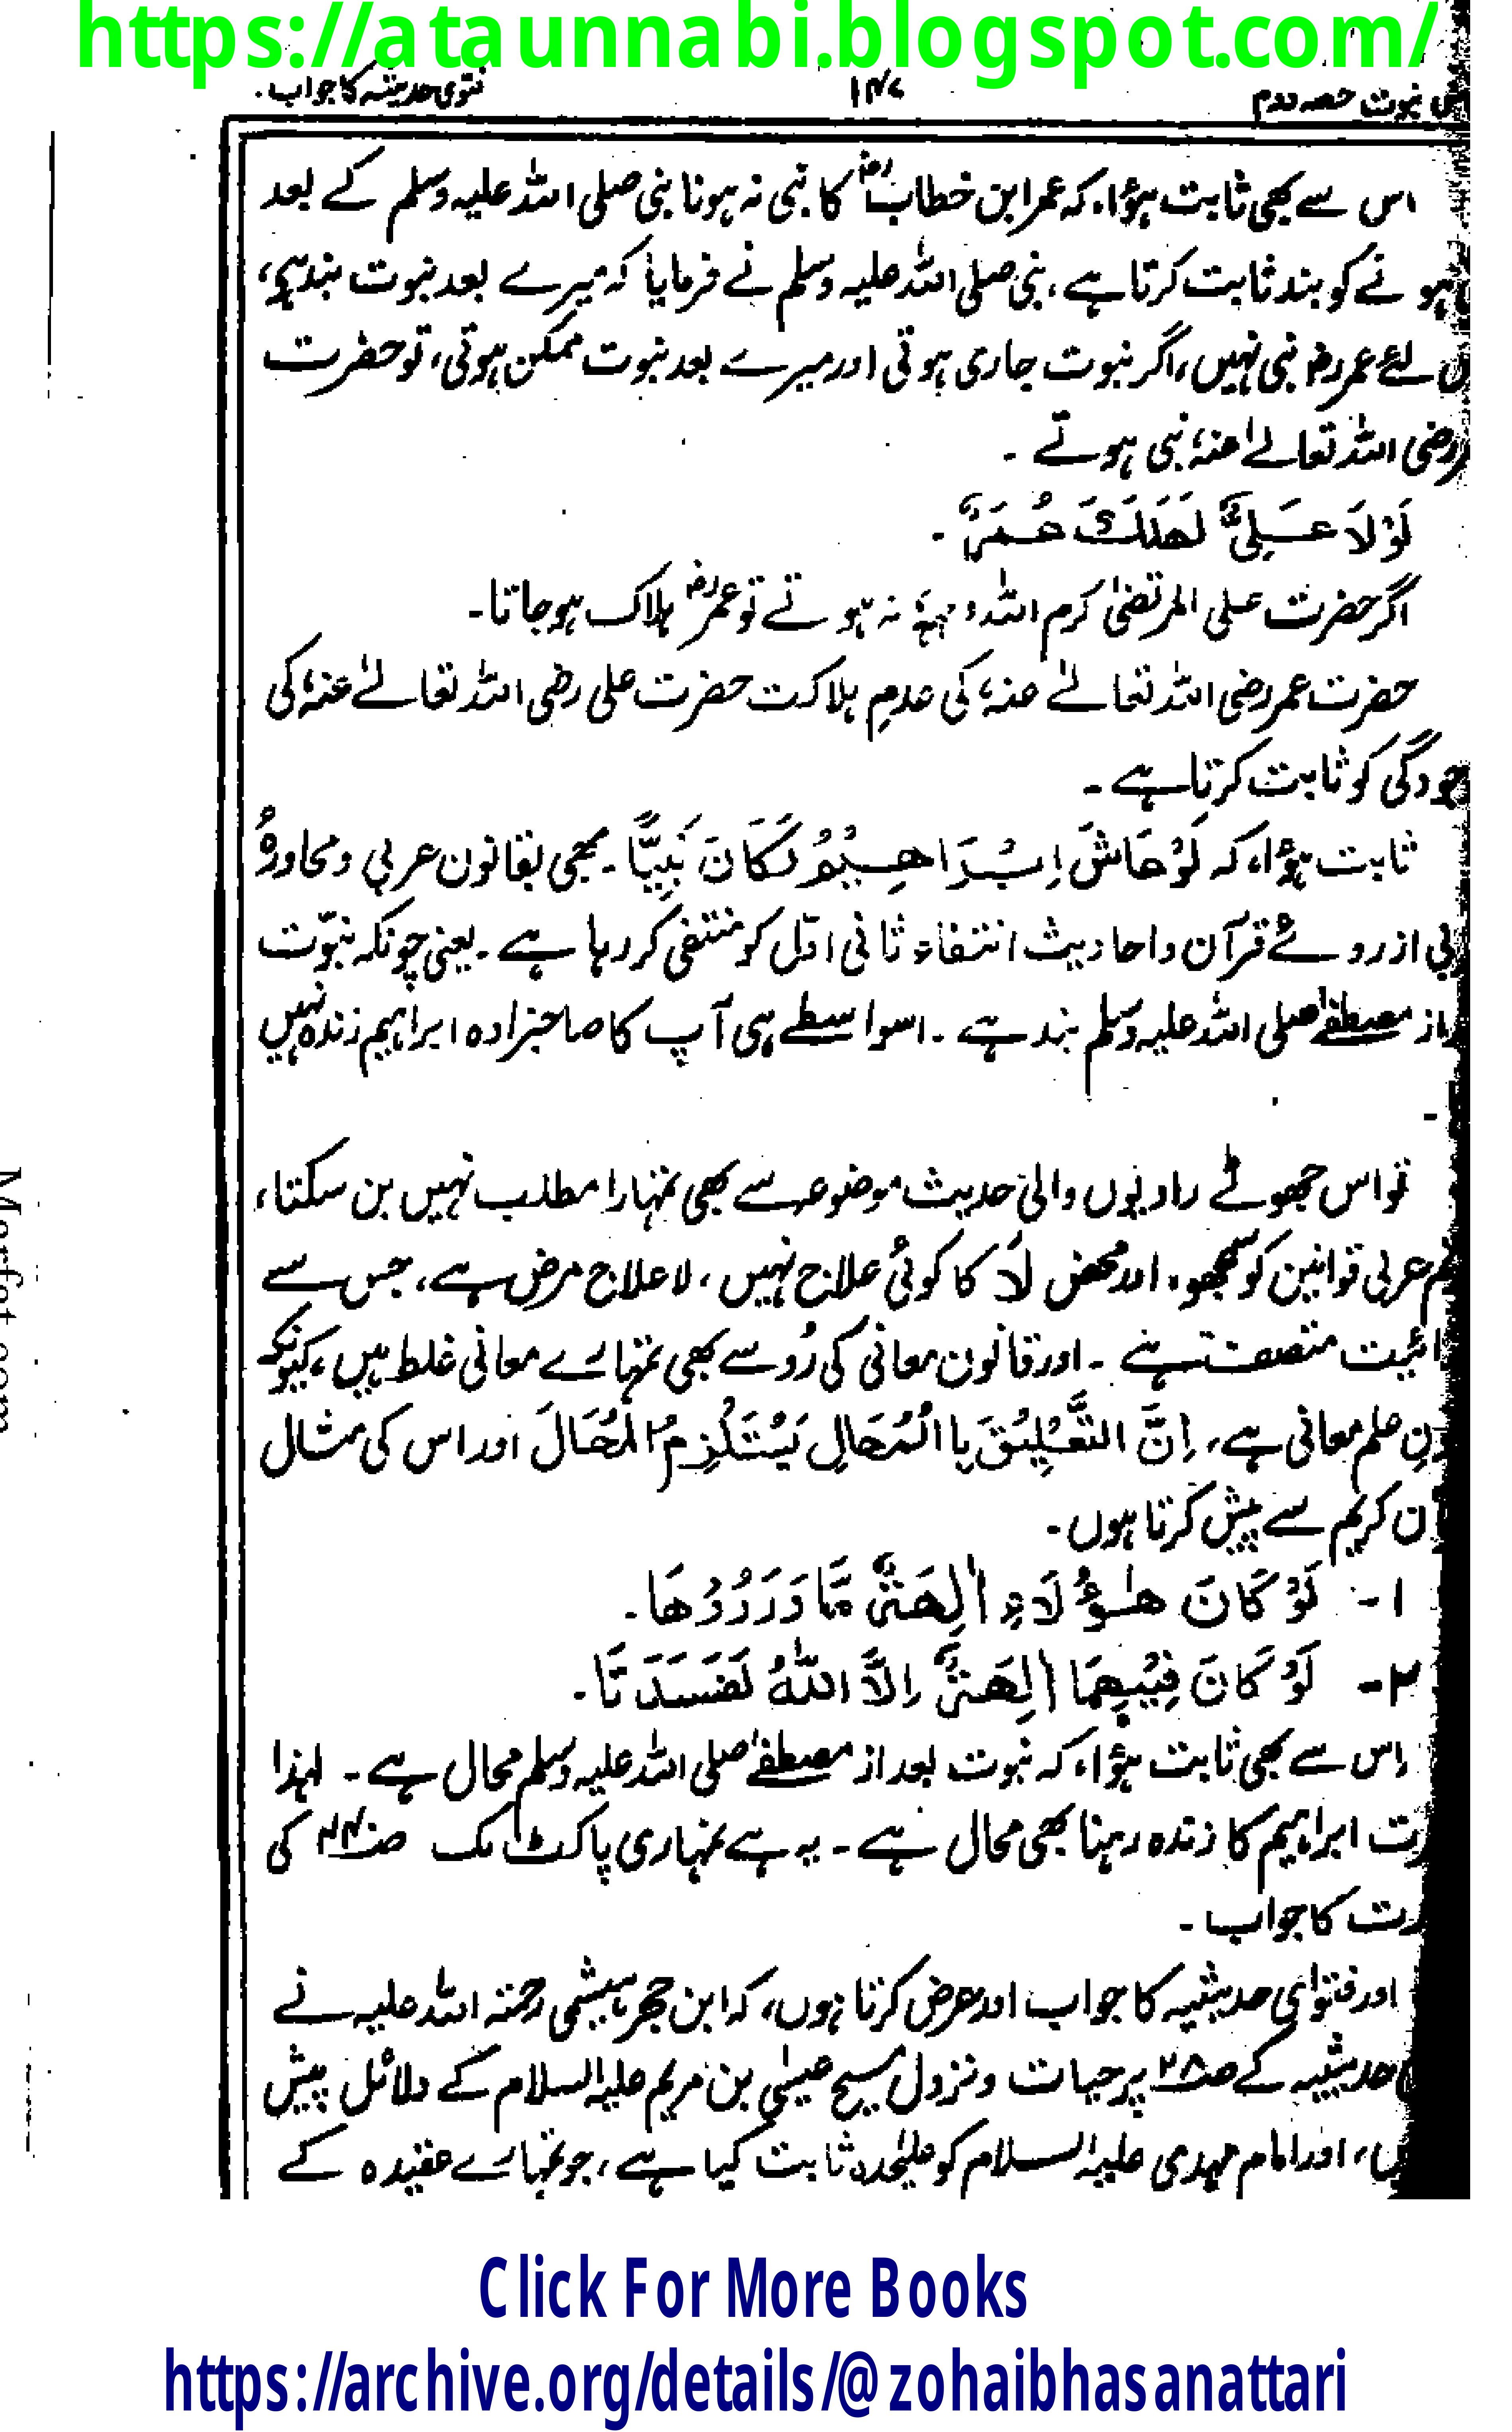 https://ataunnabi.blogspot.com/
نبوت حصہ دوم ۱۴۷ فتوی حدیثیہ کا جواب.
اس سے بھی ثابت ہؤا، کہ عمر ابن خطابؓ کا نبی نہ ہونا نبی صلی اللہ علیہ وسلم کے بعد
ہونے کو بند ثابت کرتا ہے، نبی صلی اللہ علیہ وسلم نے فرمایا کہ میرے بعد نبوت بند ہے،
لئے عمر رضؓ نبی نہیں، اگر نبوت جاری ہوتی اور میرے بعد نبوت ممکن ہوتی، تو حضرت
رضی اللہ تعالےٰ عنہٗ نبی ہوتے ۔
لَوْلَا عَلِیٌّ لَھَلَکَ عُمَرُ ۔
اگر حضرت علی المرتضیٰ کرم اللہ وجہہٗ نہ ہوتے تو عمرؓ ہلاک ہو جاتا۔
حضرت عمر رضی اللہ تعالےٰ عنہٗ کی عدمِ ہلاکت حضرت علی رضی اللہ تعالےٰ عنہٗ کی
جودگی کو ثابت کرتا ہے ۔
ثابت ہؤا، کہ لَوْ عَاشَ اِبْرَاھِیْمُ لَکَانَ نَبِیًّا ۔ بھی بقانون عربی و محاورۂ
بی از روئے قرآن و احادیث انتفاء ثانی اوّل کو منتفی کر رہا ہے ۔ یعنی چونکہ نبوّت
از مصطفےٰ صلی اللہ علیہ وسلم بند ہے ۔ اسواسطے ہی آپ کا صاحبزادہ ابراہیم زندہ نہیں
۔
تو اس جھوٹے راویوں والی حدیث موضوعہ سے بھی تمہارا مطلب نہیں بن سکتا،
م عربی قوانین کو سمجھو، اور محض لَا کا کوئی علاج نہیں، لا علاج مرض ہے، جس سے
ائیت متصف ہے ۔ اور قانون معانی کی رُو سے بھی تمہارے معانی غلط ہیں، کیونکہ
نِ علم معانی ہے، اِنَّ التَّعْلِیْقَ بِاالْمُحَالِ یَسْتَلْزِمُ الْمُحَالَ اور اس کی مثال
ن کریم سے پیش کرتا ہوں۔
۱- لَوْ کَانَ ھٰؤُلَاءِ اٰلِھَۃً مَّا وَرَدُوْھَا۔
۲- لَوْ کَانَ فِیْھِمَا اٰلِھَۃٌ اِلَّا اللّٰہُ لَفَسَدَتَا۔
اِس سے بھی ثابت ہؤا، کہ نبوت بعد از مصطفےٰ صلی اللہ علیہ وسلم محال ہے ۔ لہذا
رت ابراہیم کا زندہ رہنا بھی محال ہے ۔ یہ ہے تمہاری پاکٹ بک کی
رت کا جواب ۔
اور فتوای حدیثیہ کا جواب اور عرض کرتا ہوں، کہ ابن حجر ہیثمی رحمتہ اللہ علیہ نے
حدیثیہ کے صہ۲۸ پر حیات و نزول مسیح عیسٰی بن مریم علیہ السلام کے دلائل پیش
اور امام مہدی علیہ السلام کو علیٰحدہ ثابت کیا ہے، جو تمہارے عقیدہ کے
Click For More Books
https://archive.org/details/@zohaibhasanattari